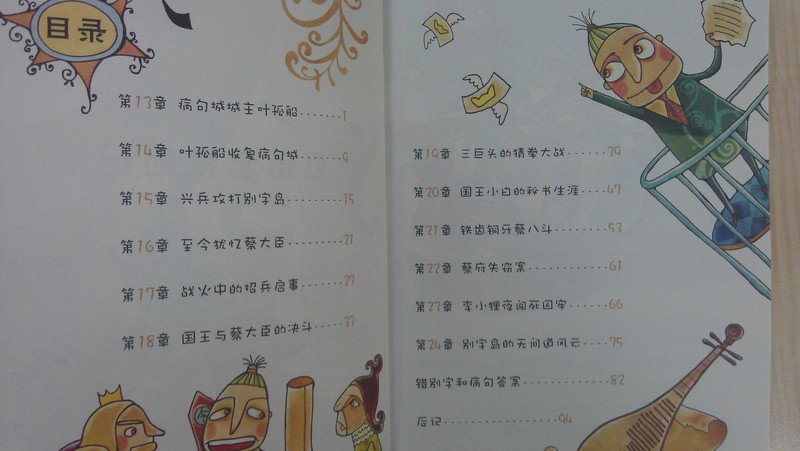 目录
第13章 病句城城主叶孤船.......1
第14章 叶孤船收复病句城......9
第15章 兴兵攻打别字岛.......15
第16章 至今犹忆蔡大臣......21
第17章 战火中的招兵启事......27
第18章 国王与蔡大臣的决斗.....33
第19章 三巨头的猜拳大战......39
第20章 国王小白的秘书生涯......47
第21章 铁齿铜牙蔡八斗........53
第22章 蔡府失窃案...........61
第23章 李小狸夜闯死囚牢......66
第24章 别字岛的无间道风云....75
错别字和病句答案...........82
后记.................94